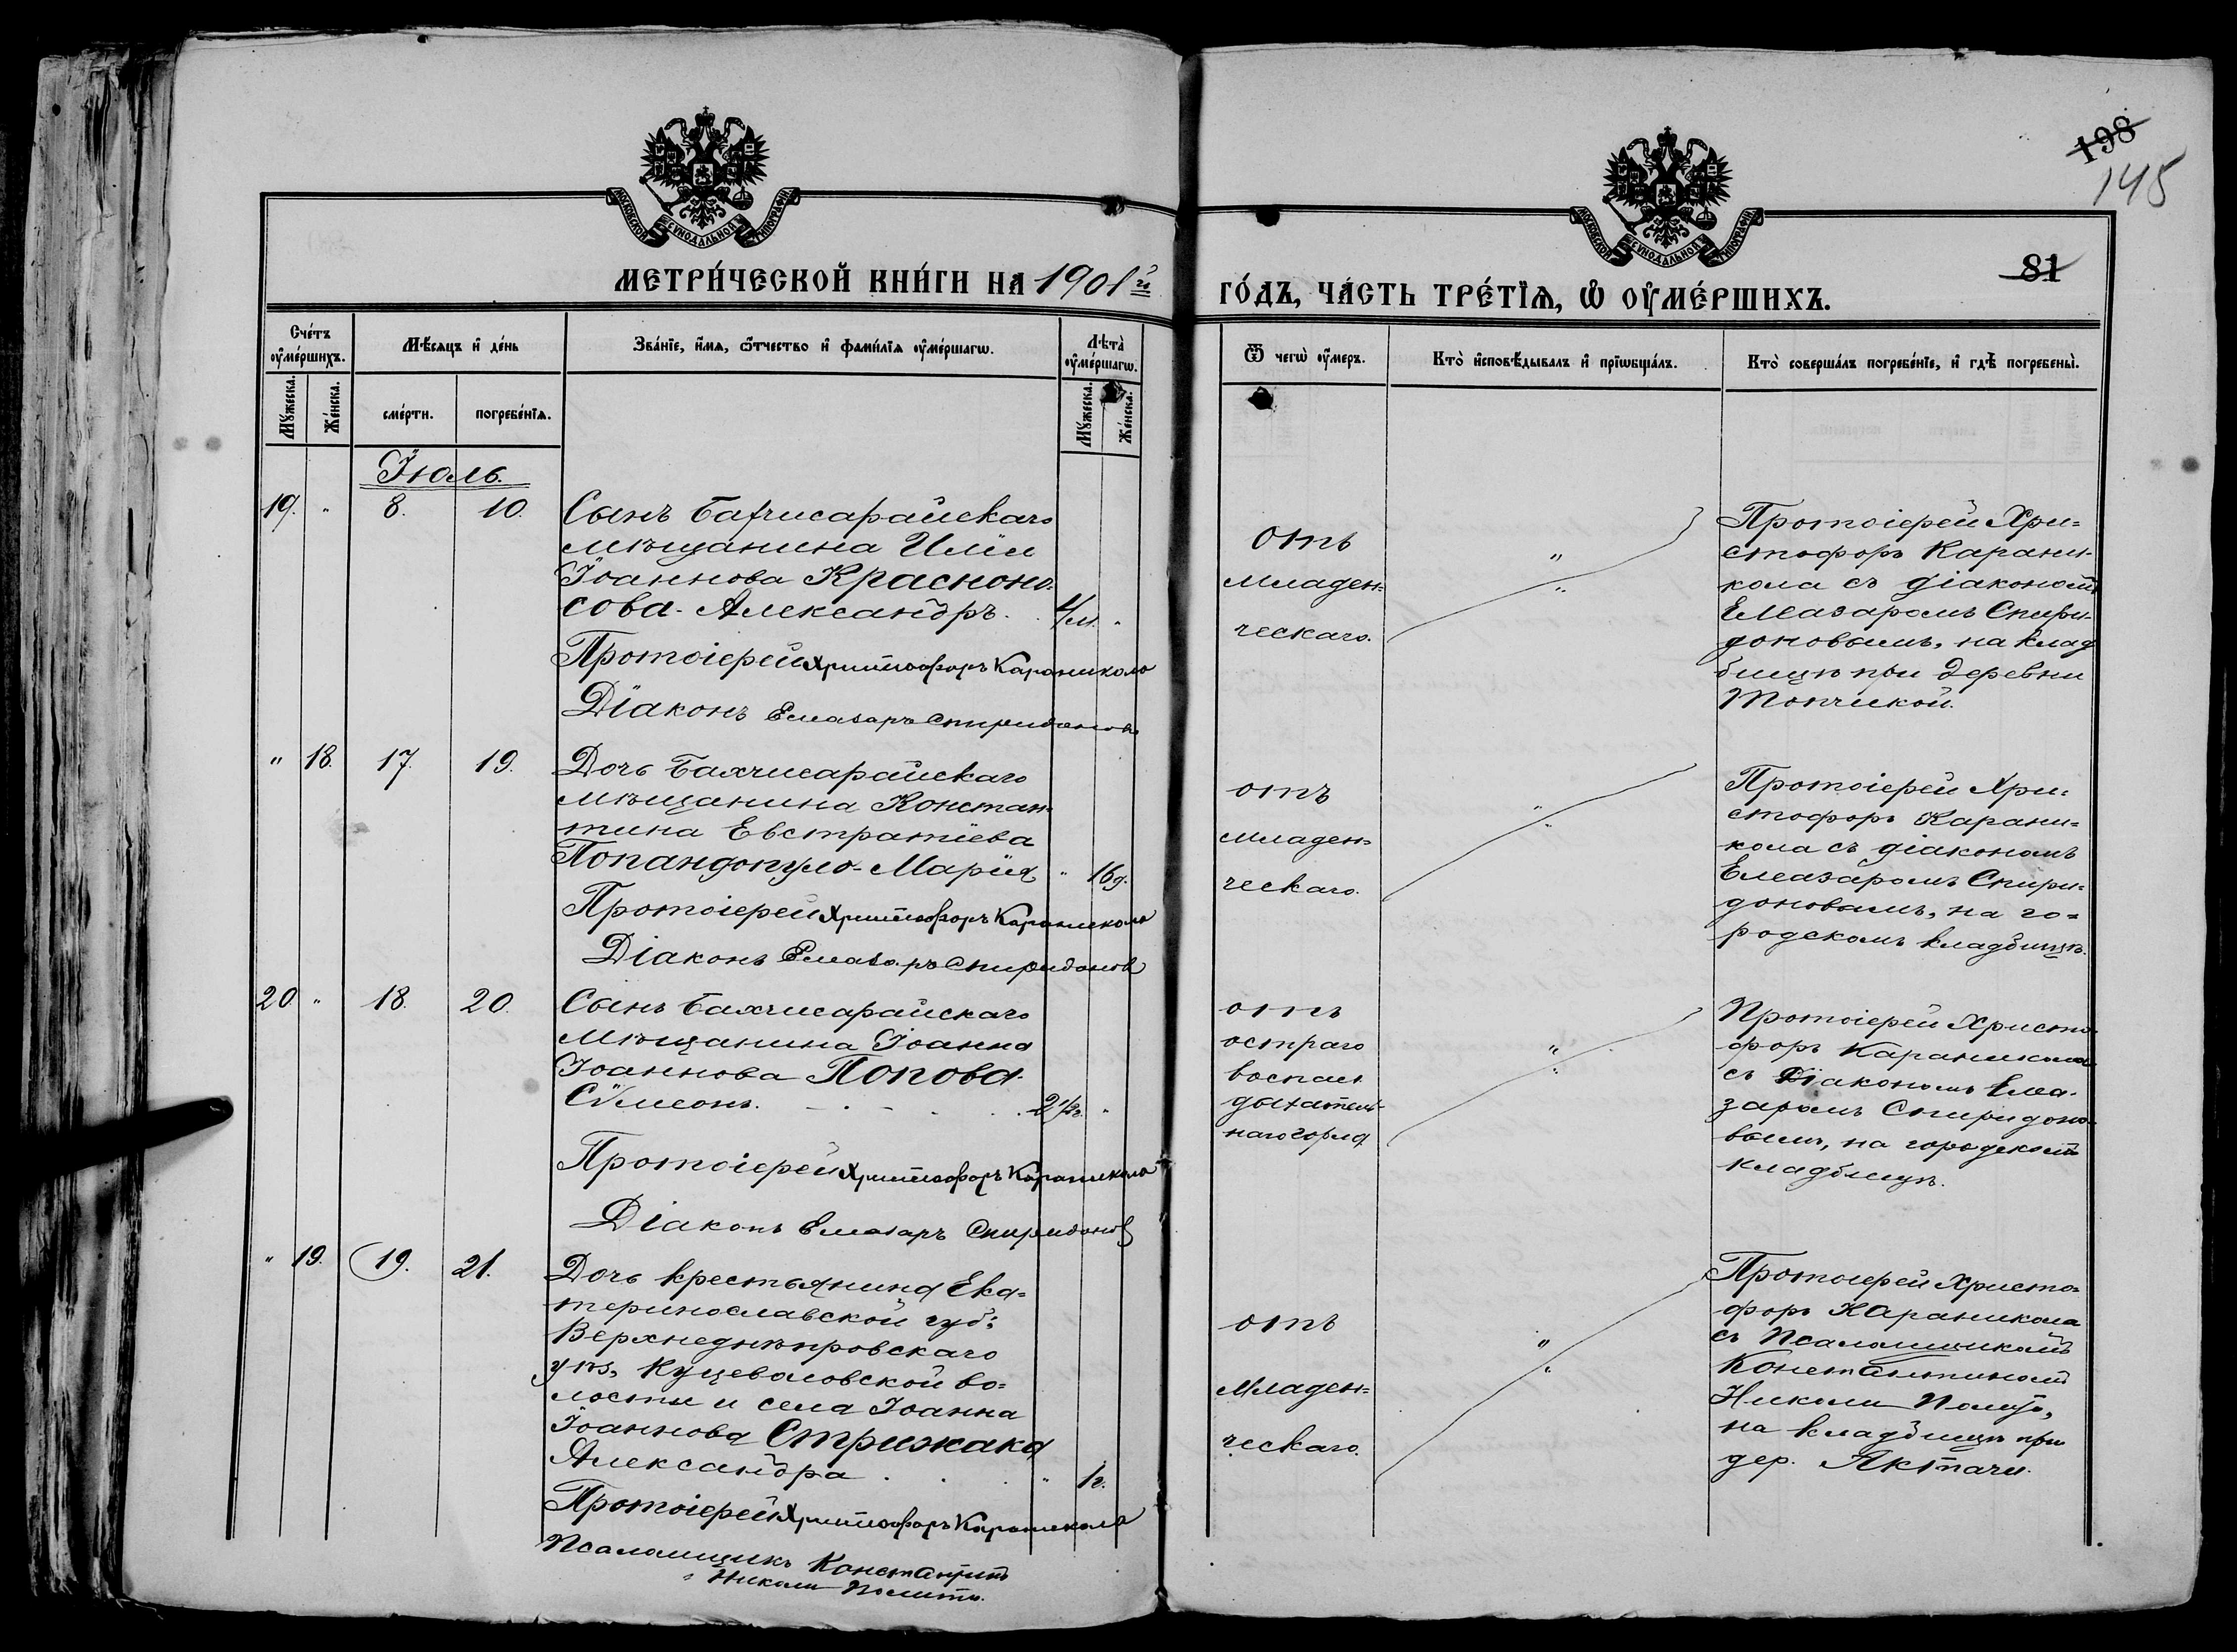 198
145
81
МОСКОВСКОЙ СѴНОДАЛЬНОЙ ТИПОГРАФІИ
МОСКОВСКОЙ СѴНОДАЛЬНОЙ ТИПОГРАФІИ
МЕТРИ́ЧЕСКОЙ КНИ́ГИ НА 1901 й
ГО́ДЪ, ЧА́СТЬ ТРЕ́ТІѦ, Ѡ҆ ОУ҆МЕ́РШИХЪ.
Сче́тъ оу҆ме́ршихъ.
Мꙋ́жеска.
Же́нска.
Мѣ́сяцъ и҆ де́нь
сме́рти.
погребе́нїѧ.
Зва́нїе, и҆́мѧ, ѻ҆́тчество и҆ фами́лїѧ оу҆ме́ршагѡ.
Лѣ́та̀ оу҆ме́ршагѡ.
Мꙋ́жеска.
Же́нска.
Ѿ чегѡ̀ оу҆́меръ.
Кто̀ и҆сповѣ́дывалъ и҆ прїѡбща́лъ.
Кто̀ соверша́лъ погребе́нїе, и҆ гдѣ̀ погребены̀.
Іюль.
19. " 8. 10.
Сынъ Бахчисарайскаго
мѣщанина Иліи
Іоаннова Красноно-
сова - Александръ. 4/м. "
Протоіерей Христофоръ Караникола
Діаконъ Елеазаръ Спиридоновъ
отъ
младен-
ческаго.
"
"
Протоіерей Хри-
стофоръ Карани-
кола съ діакономъ
Елеазаромъ Спири-
доновымъ, на клад
бищѣ при деревни
Топчикой.
" 18. 17. 19.
Дочь Бахчисарайскаго
мѣщанина Констан-
тина Евстратіева
Попандопуло - Марія " 16 д.
Протоіерей Христофоръ Караникола
Діаконъ Елеазаръ Спиридоновъ
отъ
младен-
ческаго.
"
"
Протоіерей Хри-
стофоръ Карани-
кола съ діакономъ
Елеазаромъ Спири-
доновымъ, на го-
родскомъ кладбищѣ.
20. " 18. 20.
Сынъ Бахчисарайскаго
мѣщанина Іоанна
Іоаннова Попова
Сѵмеонъ. 2½ г. "
Протоіерей Христофоръ Караникола
Діаконъ Елеазаръ Спиридоновъ
отъ
остраго
воспал.
дыхатель-
наго горла
"
"
Протоіерей Христо-
форъ Караникола
съ Діакономъ Елеа-
заромъ Спиридоно-
вымъ, на городскомъ
кладбищѣ.
" 19. 19. 21.
Дочь крестьянина Ека-
теринославской губ:
Верхнеднѣпровскаго
уѣз. Куцеволовской во-
лости и села Іоанна
Іоаннова Стрижака
Александра " 1 г.
Протоіерей Христофоръ Караникола
Псаломщикъ Константинъ
отъ
младен-
ческаго.
"
"
Протоіерей Христо-
форъ Караникола
съ Псаломщикомъ
Константиномъ
на кладбищѣ при
дер. Актачи.